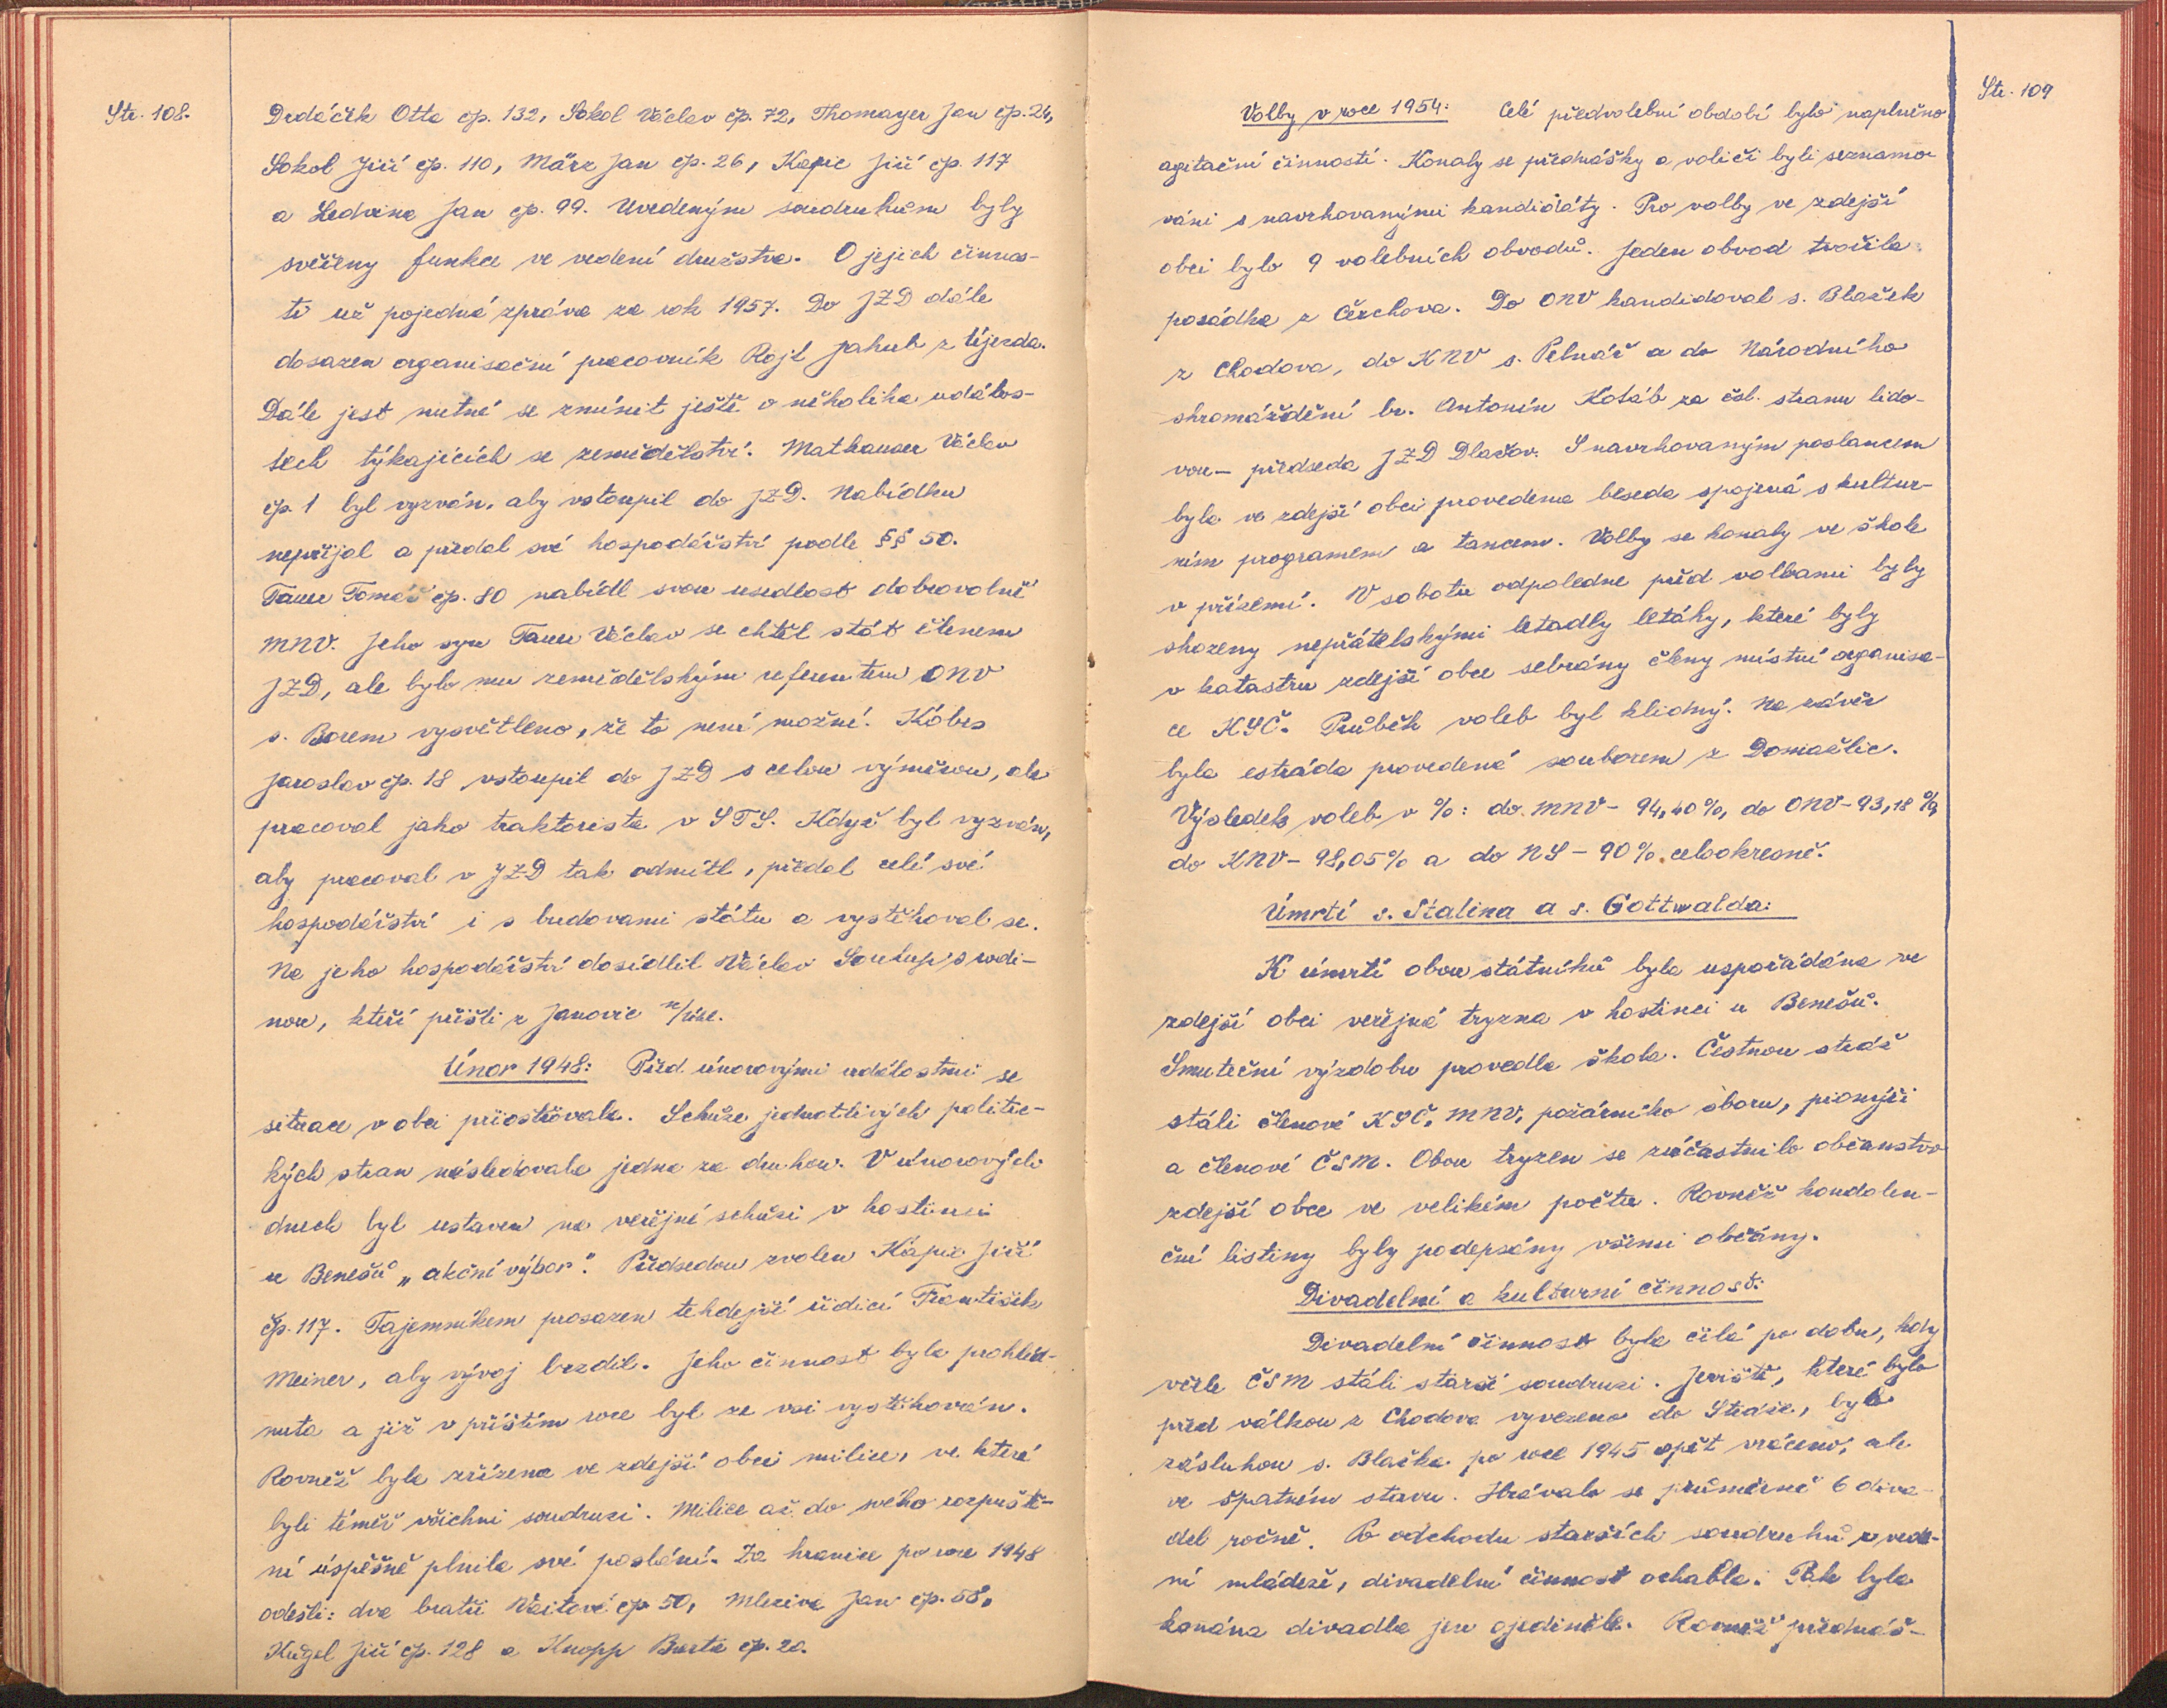 Str. 108.
Drdáček Otta čp. 132, Sokol Václav čp. 72, Thomayer Jan čp. 24,
Sokol Jiří čp. 110, März Jan čp. 26, Kapic Jiří čp. 117
a Ledvina Jan čp. 99. Uvedeným soudruhům byly
svěřeny funkce ve vedení družstva. O jejich činnos-
ti už pojedná zpráva za rok 1957. Do JZD dále
dosazen organisační pracovník Rojt Jakub z Újezda.
Dále jest nutné se zmínit ještě o několika událos-
tech týkajících se zemědělství. Mathauser Václav
čp. 1 byl vyzván, aby vstoupil do JZD. Nabídku
nepřijal a předal své hospodářství podle §§ 50.
Tauer Tomáš čp. 80 nabídl svou usedlost dobrovolně
MNV. Jeho syn Tauer Václav se chtěl stát členem
JZD, ale bylo mu zemědělským referentem ONV
s. Borem vysvětleno, že to není možné. Kobes
Jaroslav čp. 18 vstoupil do JZD s celou výměrou, ale
pracoval jako traktorista v STS. Když byl vyzván,
aby pracoval v JZD tak odmítl, předal celé své
hospodářství i s budovami státu a vystěhoval se.
Na jeho hospodářství dosídlil Václav Soukup s rodi-
nou, kteří přišli z Janovic n/Úhl.
Únor 1948: Před únorovými událostmi se
situace v obci přiostřovala. Schůze jednotlivých politic-
kých stran následovala jedna za druhou. V únorových
dnech byl ustaven na veřejné schůzi v hostinci
u Benešů „akční výbor". Předsedou zvolen Kápic Jiří
čp. 117. Tajemníkem prosazen tehdejší řídící František
Meiner, aby vývoj brzdil. Jeho činnost byla prohléd-
nuta a již v příštím roce byl ze vsi vystěhován.
Rovněž byla zřízena ve zdejší obci milice, ve které
byli téměř všichni soudruzi. Milice až do svého rozpuště-
ní úspěšně plnila své poslání. Za hranice po roce 1948
odešli: dva bratři Vaitové čp 50, Mleziva Jan čp. 58,
Kügel Jiří čp. 128 a Knopp Barta čp. 20.
Str. 109
Volby v roce 1954: Celé předvolební období bylo naplněno
agitační činností. Konaly se přednášky a voliči byli seznamo-
váni s navrhovanými kandidáty. Pro volby ve zdejší
obci bylo 9 volebních obvodů. Jeden obvod tvořila
posádka z Čerchova. Do ONV kandidoval s. Blažek
z Chodova, do KNV s. Pelnář a do Národního
shromáždění br. Antonín Kotáb za čsl. stranu lido-
vou - předseda JZD Dlažov. S navrhovaným poslancem
byla ve zdejší obci provedena beseda spojená s kultur-
ním programem a tancem. Volby se konaly ve škole
v přízemí. V sobotu odpoledne před volbami byly
shozeny nepřátelskými letadly letáky, které byly
v katastru zdejší obce sebrány členy místní organisa-
ce KSČ. Průběh voleb byl klidný. Na závěr
byla estráda provedená souborem z Domažlic.
Výsledek voleb v %: do MNV - 94,40 %, do ONV - 93,18 %,
do KNV - 98,05 % a do NS - 90 % celookresně.
Úmrtí s. Stalina a s. Gottwalda:
K úmrtí obou státníků byla uspořádána ve
zdejší obci veřejná tryzna v hostinci u Benešů.
Smuteční výzdobu provedla škola. Čestnou stráž
stáli členové KSČ, MNV, požárního sboru, pionýři
a členové ČSM. Obou tryzen se zúčastnilo občanstvo
zdejší obce ve velikém počtu. Rovněž kondolen-
ční listiny byly podepsány všemi občany.
Divadelní a kulturní činnost:
Divadelní činnost byla čilá po dobu, kdy
v čele ČSM stáli starší soudruzi. Jeviště, které bylo
před válkou z Chodova vyvezeno do Stráže, bylo
zásluhou s. Blažka po roce 1945 opět vráceno, ale
ve špatném stavu. Hrávalo se průměrně 6 diva-
del ročně. Po odchodu starších soudruhů z vede-
ní mládeže, divadelní činnost ochabla. Pak byla
konána divadla jen ojediněle. Rovněž přednáš-